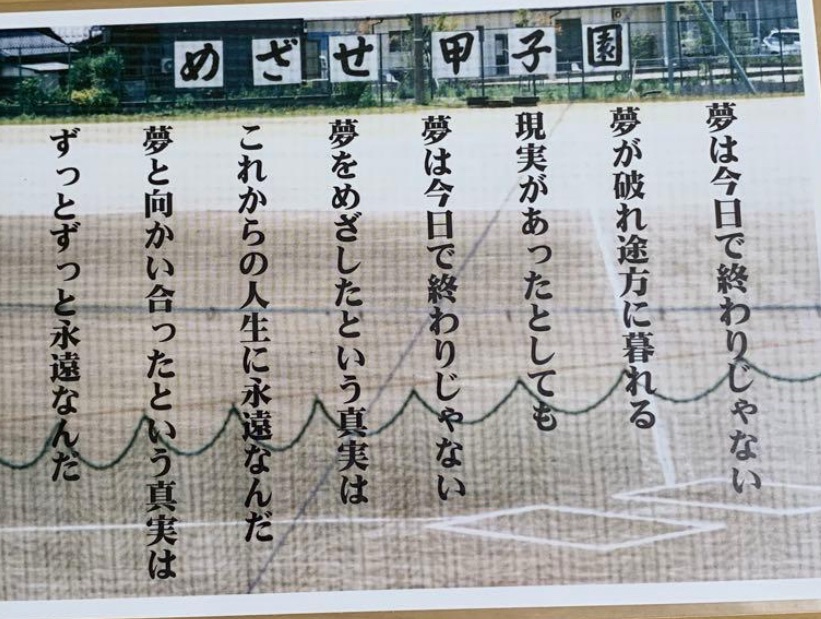 めざせ甲子園
夢は今日で終わりじゃない
夢が破れ途方に暮れる
現実があったとしても
夢は今日で終わりじゃない
夢をめざしたという真実は
これからの人生に永遠なんだ
夢と向かい合ったという真実は
ずっとずっと永遠なんだ